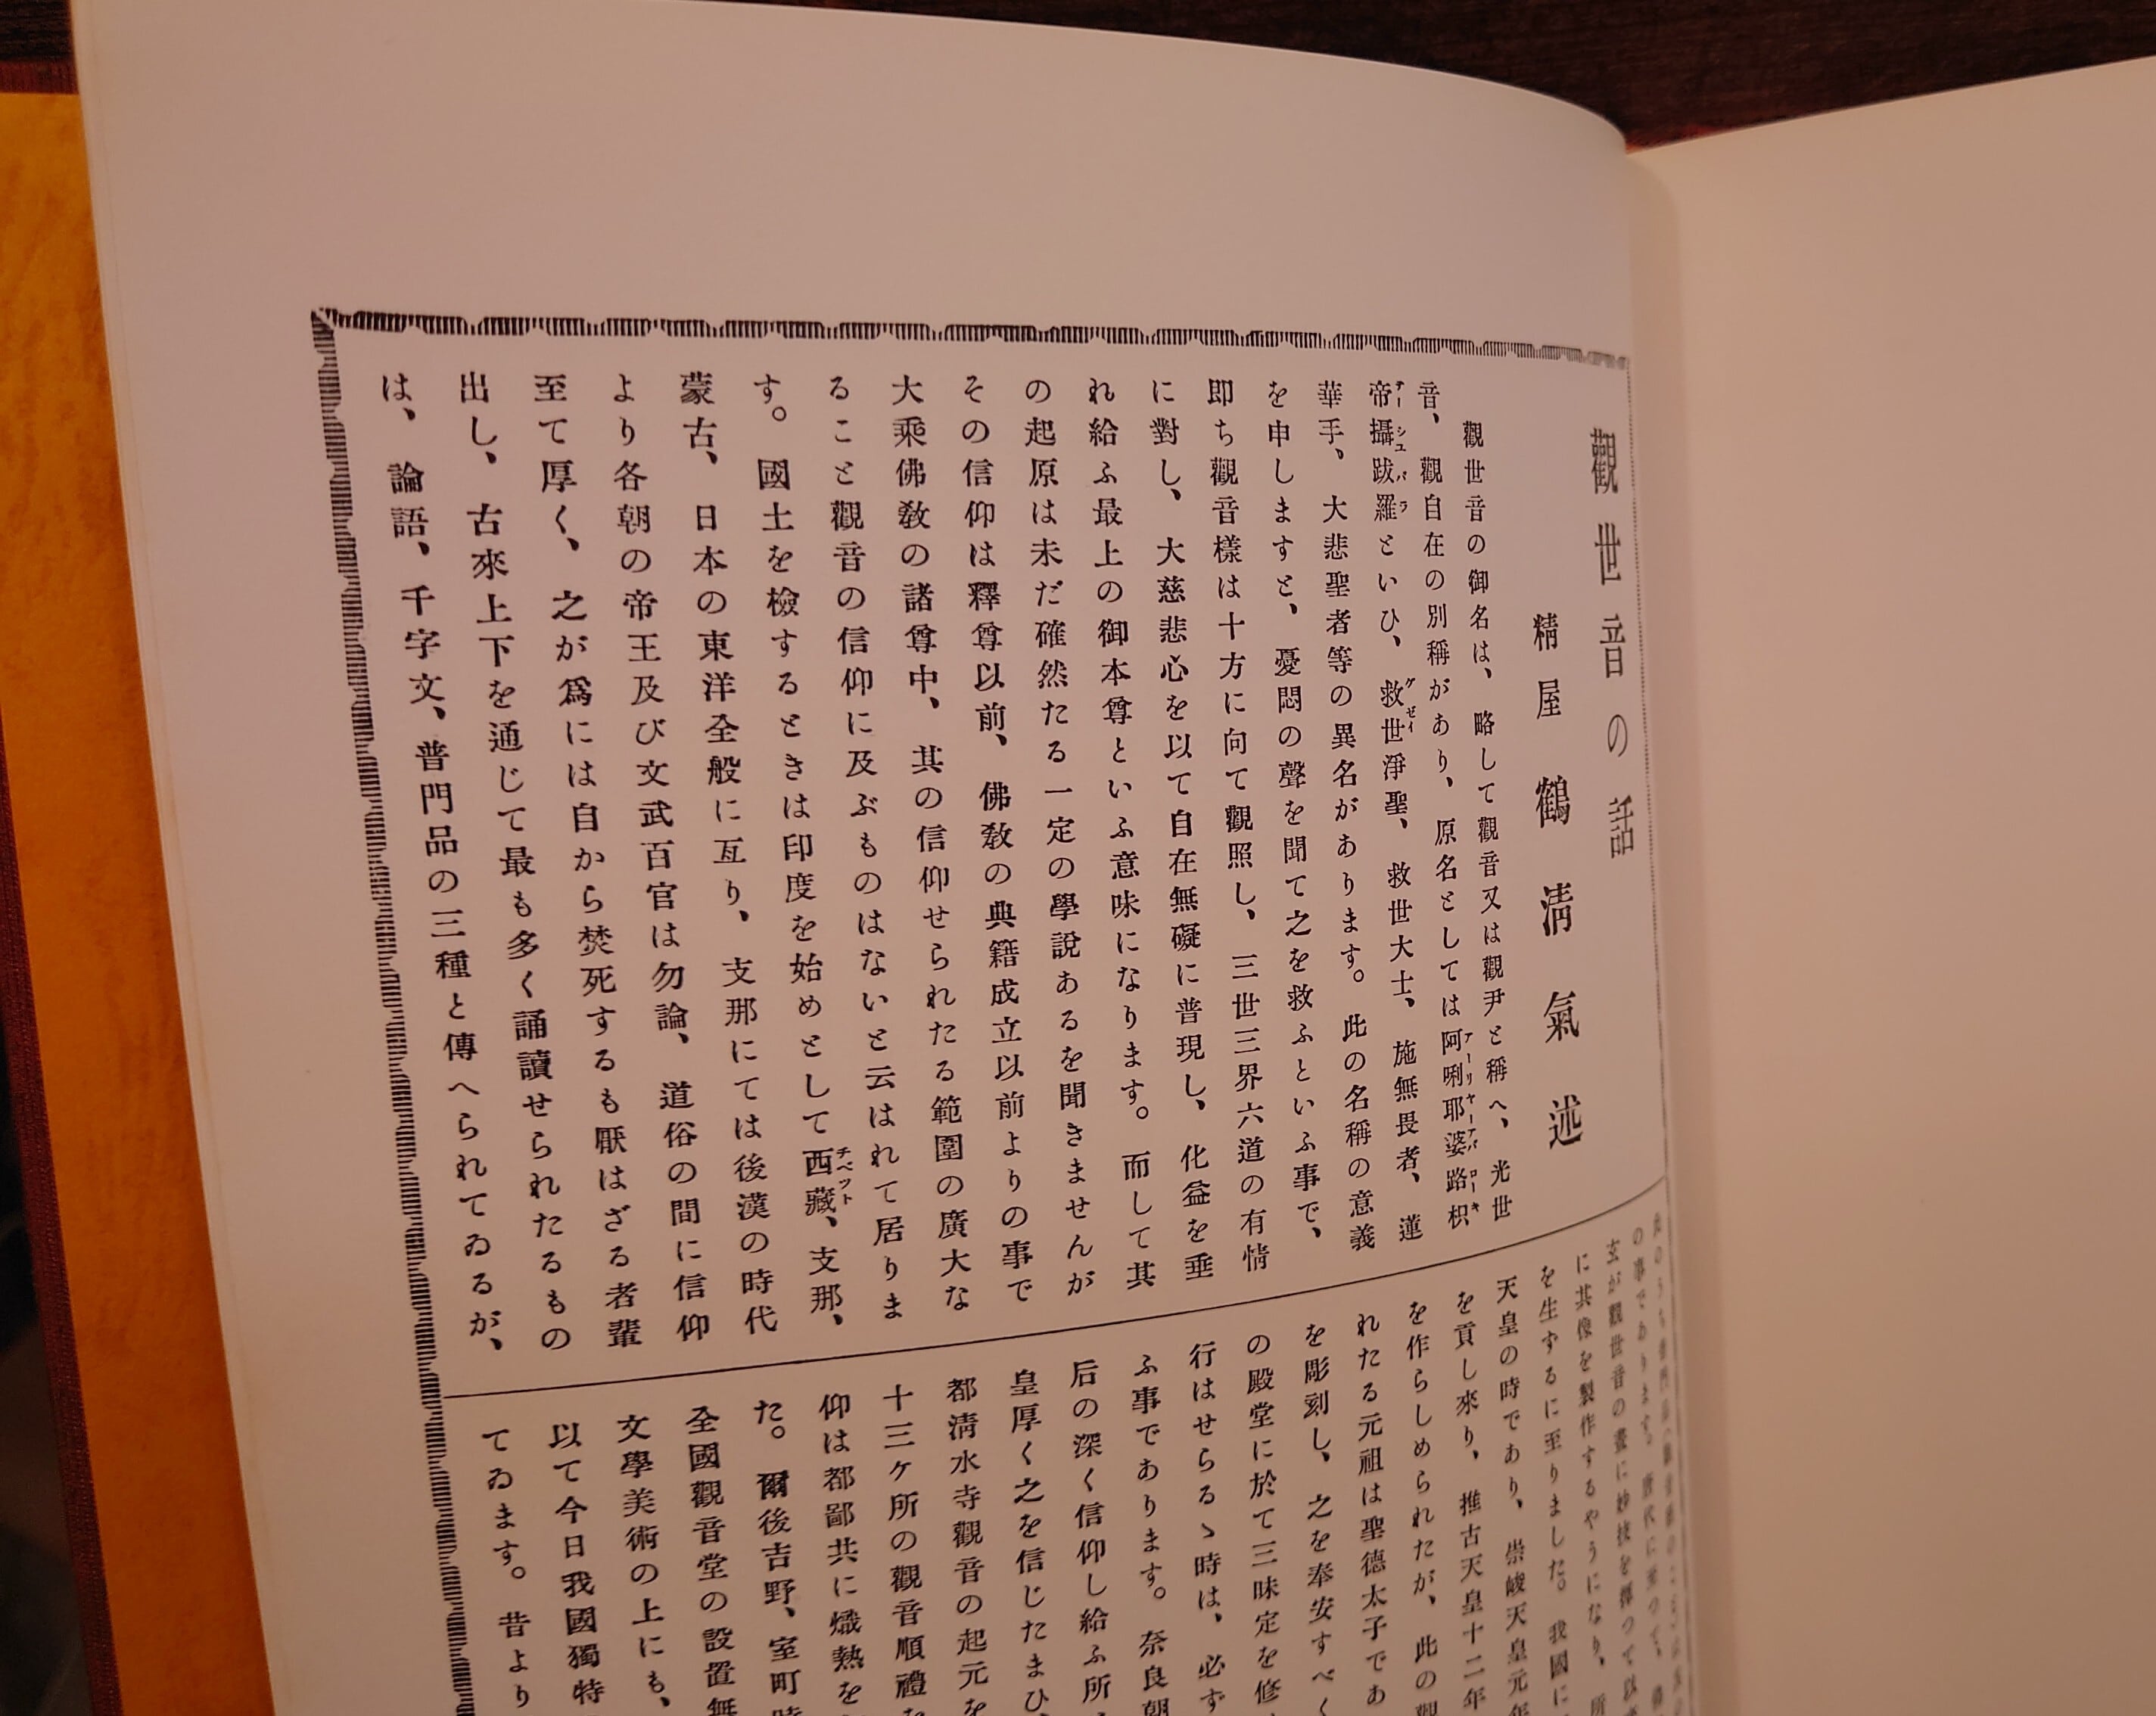 觀世音の話
精屋鶴淸氣述
觀世音の御名は、略して觀音又は觀尹と稱へ、光世
音、觀自在の別稱があり、原名としては阿唎耶婆路枳
帝攝跋羅といひ、救世淨聖、救世大士、施無畏者、蓮
華手、大悲聖者等の異名があります。此の名稱の意義
を申しますと、憂悶の聲を聞て之を救ふといふ事で、
即ち觀音樣は十方に向て觀照し、三世三界六道の有情
に對し、大慈悲心を以て自在無礙に普現し、化益を垂
れ給ふ最上の御本尊といふ意味になります。而して其
の起原は未だ確然たる一定の學說あるを聞きませんが
その信仰は釋尊以前、佛敎の典籍成立以前よりの事で
大乘佛敎の諸尊中、其の信仰せられたる範圍の廣大な
ること觀音の信仰に及ぶものはないと云はれて居りま
す。國土を檢するときは印度を始めとして西藏、支那、
蒙古、日本の東洋全般に亙り、支那にては後漢の時代
より各朝の帝王及び文武百官は勿論、道俗の間に信仰
至て厚く、之が爲には自から焚死するも厭はざる者輩
出し、古來上下を通じて最も多く誦讀せられたるもの
は、論語、千字文、普門品の三種と傳へられてゐるが、
の事であります。
玄が觀世音の畫に妙技を揮つて以
に其像を製作するやうになり、所
を生ずるに至りました。我國に
天皇の時であり、崇峻天皇元年
を貢し來り、推古天皇十二年
を作らしめられたが、此の觀
れたる元祖は聖德太子であ
を彫刻し、之を奉安すべく
の殿堂に於て三昧定を修
行はせらるゝ時は、必ず
ふ事であります。奈良朝
后の深く信仰し給ふ所
皇厚く之を信じたまひ、
都淸水寺觀音の起元を
十三ケ所の觀音順禮
仰は都鄙共に熾熱を
た。爾後吉野、室町時
全國觀音堂の設置無
文學美術の上にも、
以て今日我國獨特
てゐます。昔より